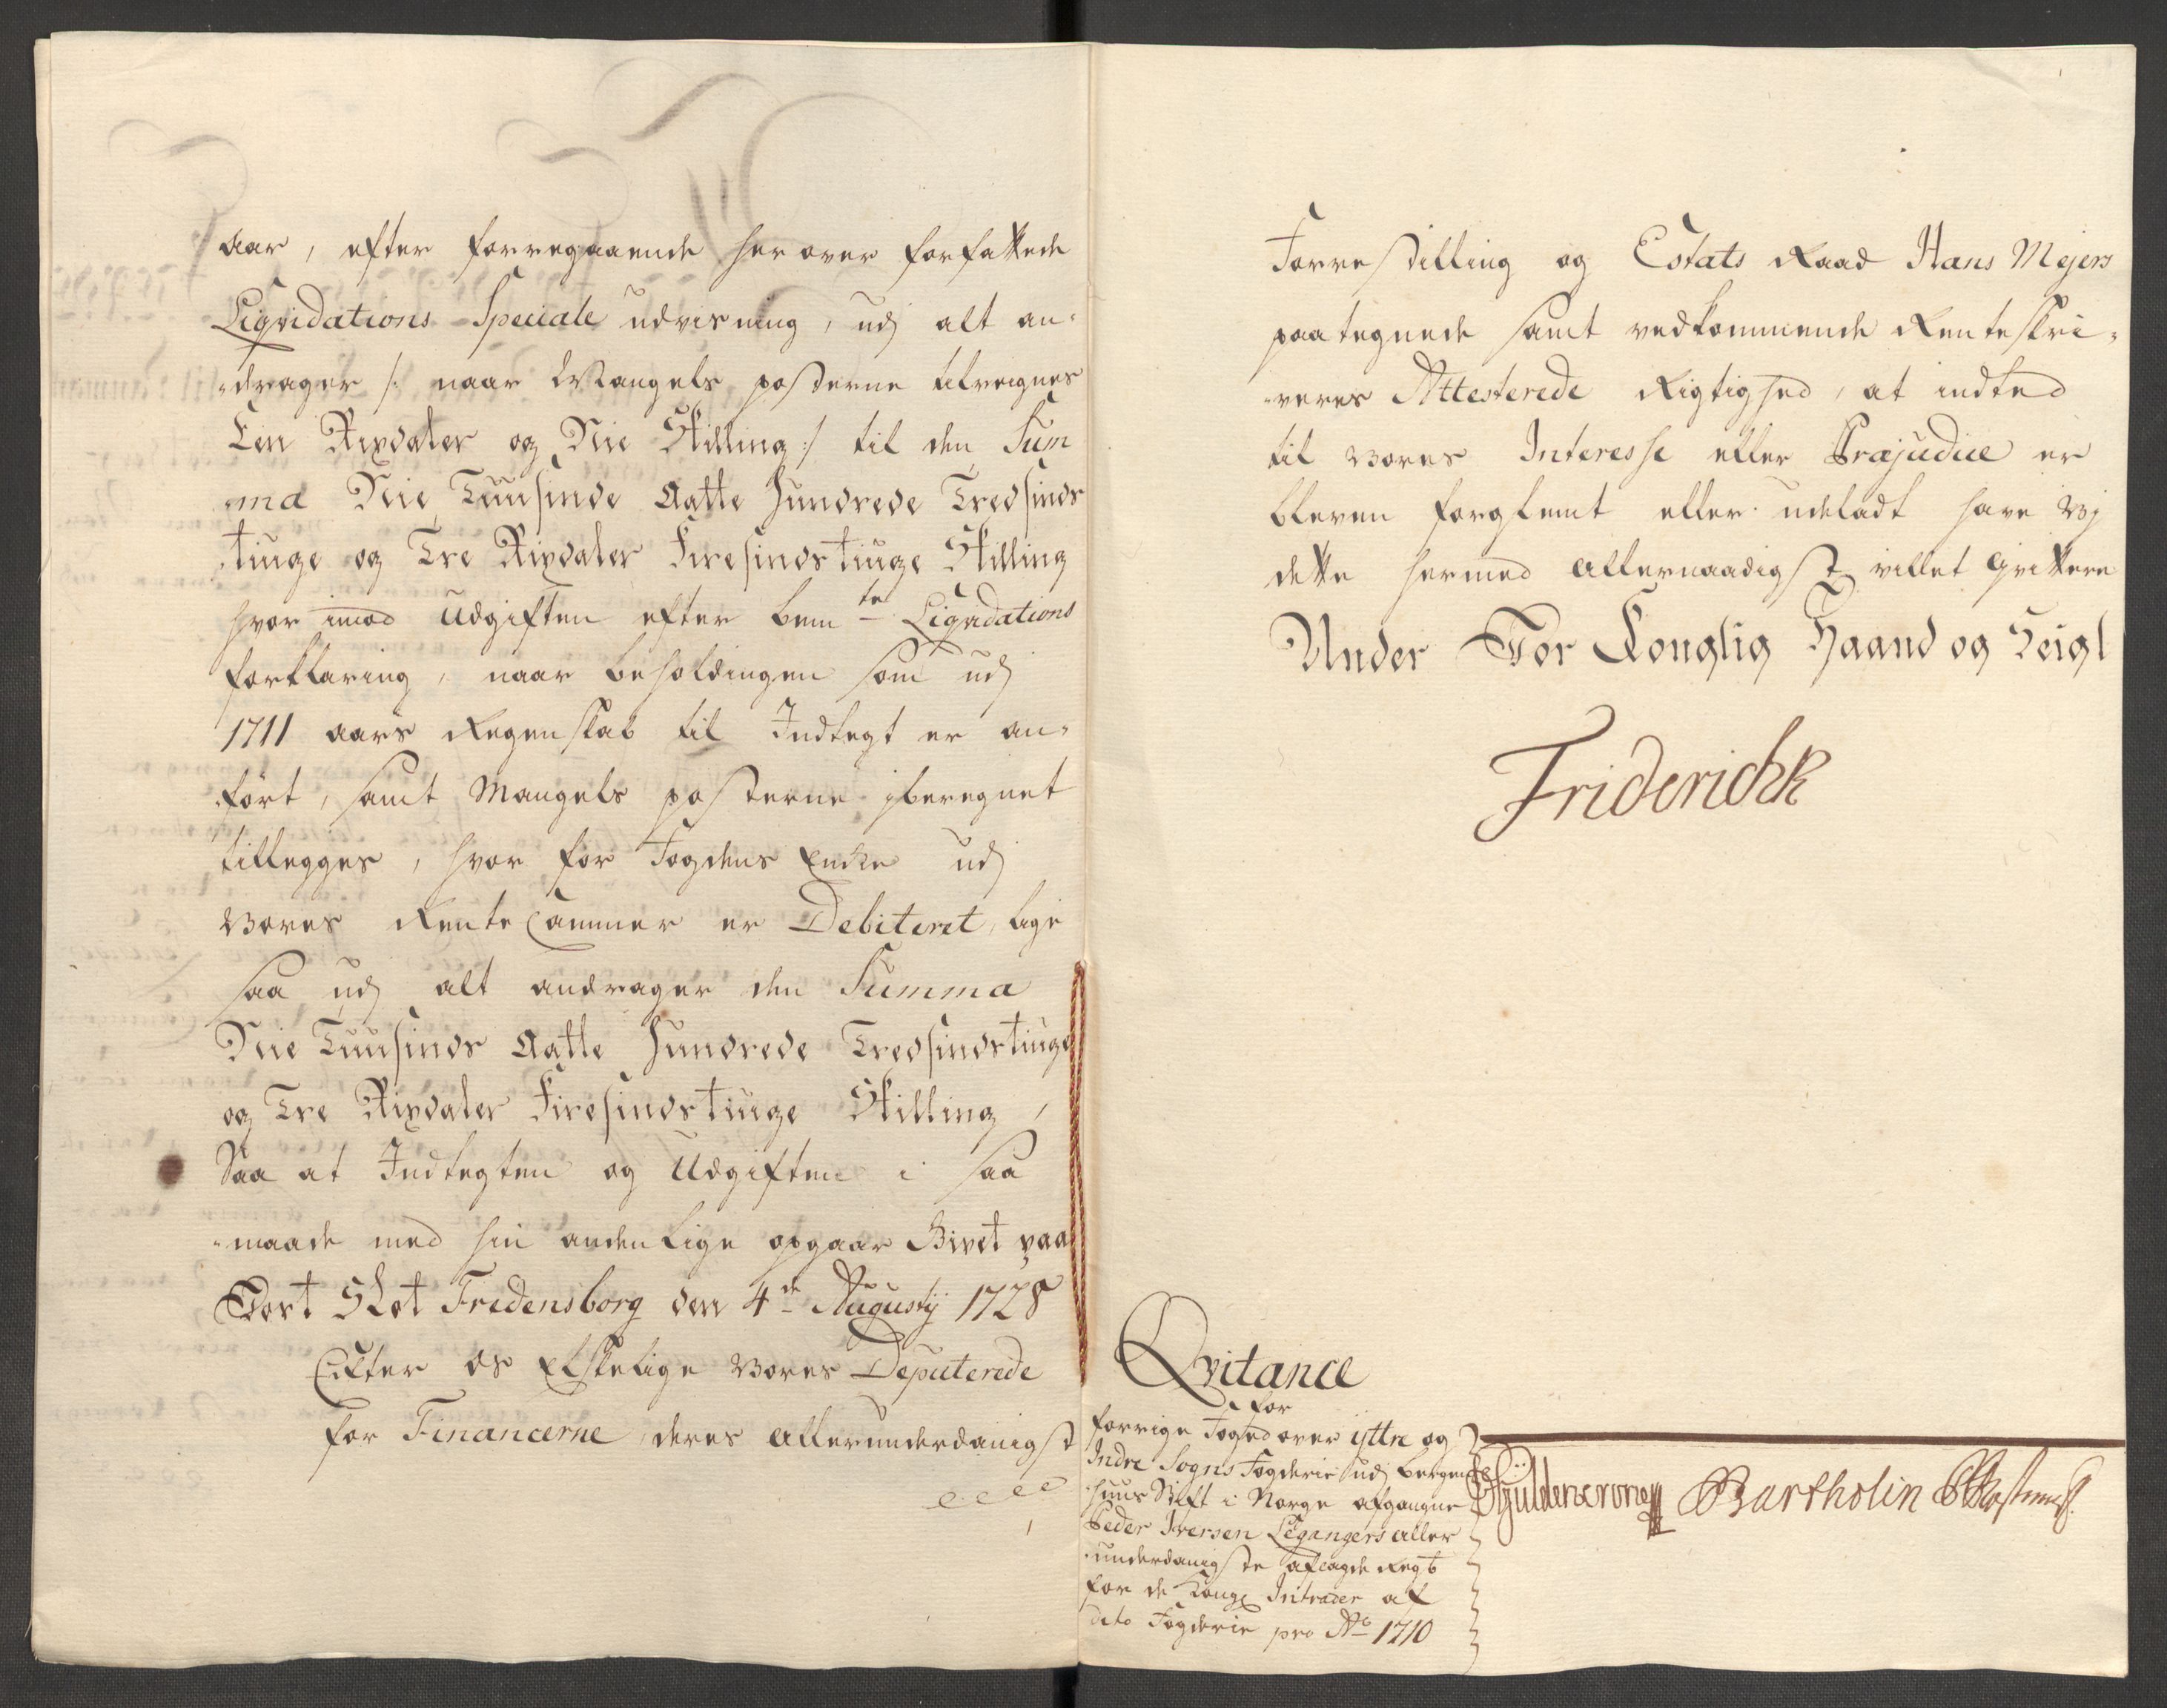 aar, efter forregaaende her over forfattede
Liqvidations Speciale udvisning, udj alt an-
-drager /: naar Mangels posterne tilreignes
Een Rixdaler og Nie Skilling :/ til den Sum
-ma Nie Tuusinde Aatte Hundrede Tredsinds
tiuge og Tre Rixdaler Firesindstiuge Skilling
hvor imod Udgiften efter bemte Liqvidations
forklaring, naar beholdingen som udj
1711 aars Regenskab til Indtegt er an-
ført, samt Mangels posterne iberegnet
tillegges, hvor for Fogdens Enke udj
Vores Rente Cammer er Debiteret, lige
saa udj alt andrager den Summa
Nie Tuusinds Aatte Hundrede Tredsindstiuge
og Tre Rixdaler Firesindstiuge Skilling,
Saa at Indtegten og Udgiften i saa
-maade med hin anden lige opgaar Givet paa
Vort Slot Fredensborg den 4de Augustij 1728
Eftter os Elskelige Vores Deputerede
for Financerne, deres allerunderdanigst
Forrestilling og Estats Raad Hans Mejers
paategnede samt vedkommende Renteskri-
-veres Attesterede Rigtighed, at indted
til Vores Interesse eller Præjudice er
bleven forglemt eller udeladt have Vj
dette hermed allernaadigst villet qvittere
Under Vor Konglig Haand og Seigl
Friderich R
Qvitance
for
forrige Foged over yttre og
Indre Sogns Fogderie udj Bergen
huus Stift i Norge afgangne
Peder Iversen Legangers aller
-underdanigste aflagde Regb
for de Kongl Intrader af
dito Fogderie pro Ao 1710
Güldencrone Bartholin